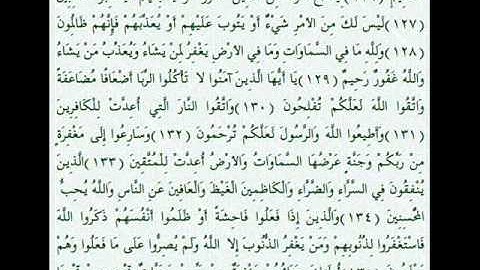 (١٢٧) لَيْسَ لَكَ مِنَ الأَمْرِ شَيْءٌ أَوْ يَتُوبَ عَلَيْهِمْ أَوْ يُعَذِّبَهُمْ فَإِنَّهُمْ ظَالِمُونَ
(١٢٨) وَلِلَّهِ مَا فِي السَّمَاوَاتِ وَمَا فِي الأَرْضِ يَغْفِرُ لِمَنْ يَشَاءُ وَيُعَذِّبُ مَنْ يَشَاءُ
وَاللَّهُ غَفُورٌ رَحِيمٌ (١٢٩) يَا أَيُّهَا الَّذِينَ آمَنُوا لا تَأْكُلُوا الرِّبَا أَضْعَافًا مُضَاعَفَةً
وَاتَّقُوا اللَّهَ لَعَلَّكُمْ تُفْلِحُونَ (١٣٠) وَاتَّقُوا النَّارَ الَّتِي أُعِدَّتْ لِلْكَافِرِينَ
(١٣١) وَأَطِيعُوا اللَّهَ وَالرَّسُولَ لَعَلَّكُمْ تُرْحَمُونَ (١٣٢) وَسَارِعُوا إِلَى مَغْفِرَةٍ
مِنْ رَبِّكُمْ وَجَنَّةٍ عَرْضُهَا السَّمَاوَاتُ وَالأَرْضُ أُعِدَّتْ لِلْمُتَّقِينَ (١٣٣) الَّذِينَ
يُنْفِقُونَ فِي السَّرَّاءِ وَالضَّرَّاءِ وَالْكَاظِمِينَ الْغَيْظَ وَالْعَافِينَ عَنِ النَّاسِ وَاللَّهُ يُحِبُّ
الْمُحْسِنِينَ (١٣٤) وَالَّذِينَ إِذَا فَعَلُوا فَاحِشَةً أَوْ ظَلَمُوا أَنْفُسَهُمْ ذَكَرُوا اللَّهَ
فَاسْتَغْفَرُوا لِذُنُوبِهِمْ وَمَنْ يَغْفِرُ الذُّنُوبَ إِلا اللَّهُ وَلَمْ يُصِرُّوا عَلَى مَا فَعَلُوا وَهُمْ